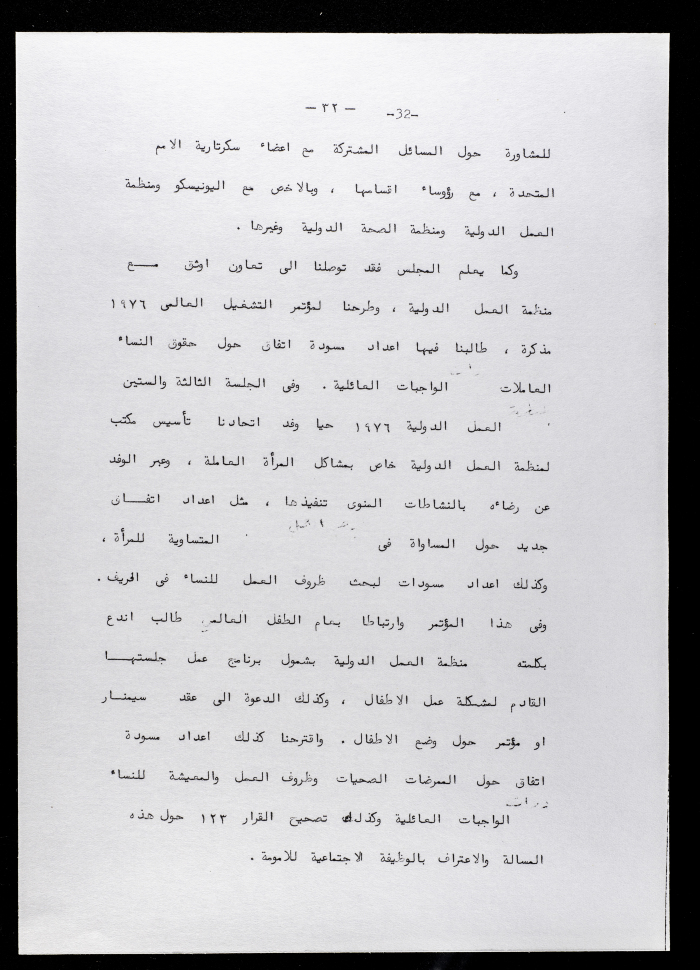 — ٣٢ —   -32-
للمشاورة حول المسائل المشتركة مع اعضاء سكرتارية الامم
المتحدة ، مع رؤوساء اقسامها ، وبالاخص مع اليونيسكو ومنظمة
العمل الدولية ومنظمة الصحة الدولية وغيرها .
وكما يعلم المجلس فقد توصلنا الى تعاون اوثق مـــع
منظمة العمل الدولية ، وطرحنا لمؤتمر التشغيل العالمى ١٩٧٦
مذكرة ، طالبنا فيها اعداد مسودة اتفاق حول حقوق النساء
العاملات الواجبات العائلية . وفى الجلسة الثالثة والستين
العمل الدولية ١٩٧٦ حيا وفد اتحادنا تأسيس مكتب
لمنظمة العمل الدولية خاص بمشاكل المرأة العاملة ، وعبر الوفد
عن رضاءه بالنشاطات المنوى تنفيذها ، مثل اعداد اتفـــاق
جديد حول المساواة فى المتساوية للمرأة ،
وكذلك اعداد مسودات لبحث ظروف العمل للنساء فى الخريف .
وفى هذا المؤتمر وارتباطا بعام الطفل العالمي طالب اندع
بكلمته منظمة العمل الدولية بشمول برنامج عمل جلستهـــا
القادم لمشكلة عمل الاطفال ، وكذلك الدعوة الى عقد سيمنـار
او مؤتمر حول وضع الاطفال . واقترحنا كذلك اعداد مسودة
اتفاق حول الممرضات الصحيات وظروف العمل والمعيشة للنساء
ذوات
الواجبات العائلية وكذلك تصحيح القرار ١٢٣ حول هذه
المسالة والاعتراف بالوظيفة الاجتماعية للامومة .